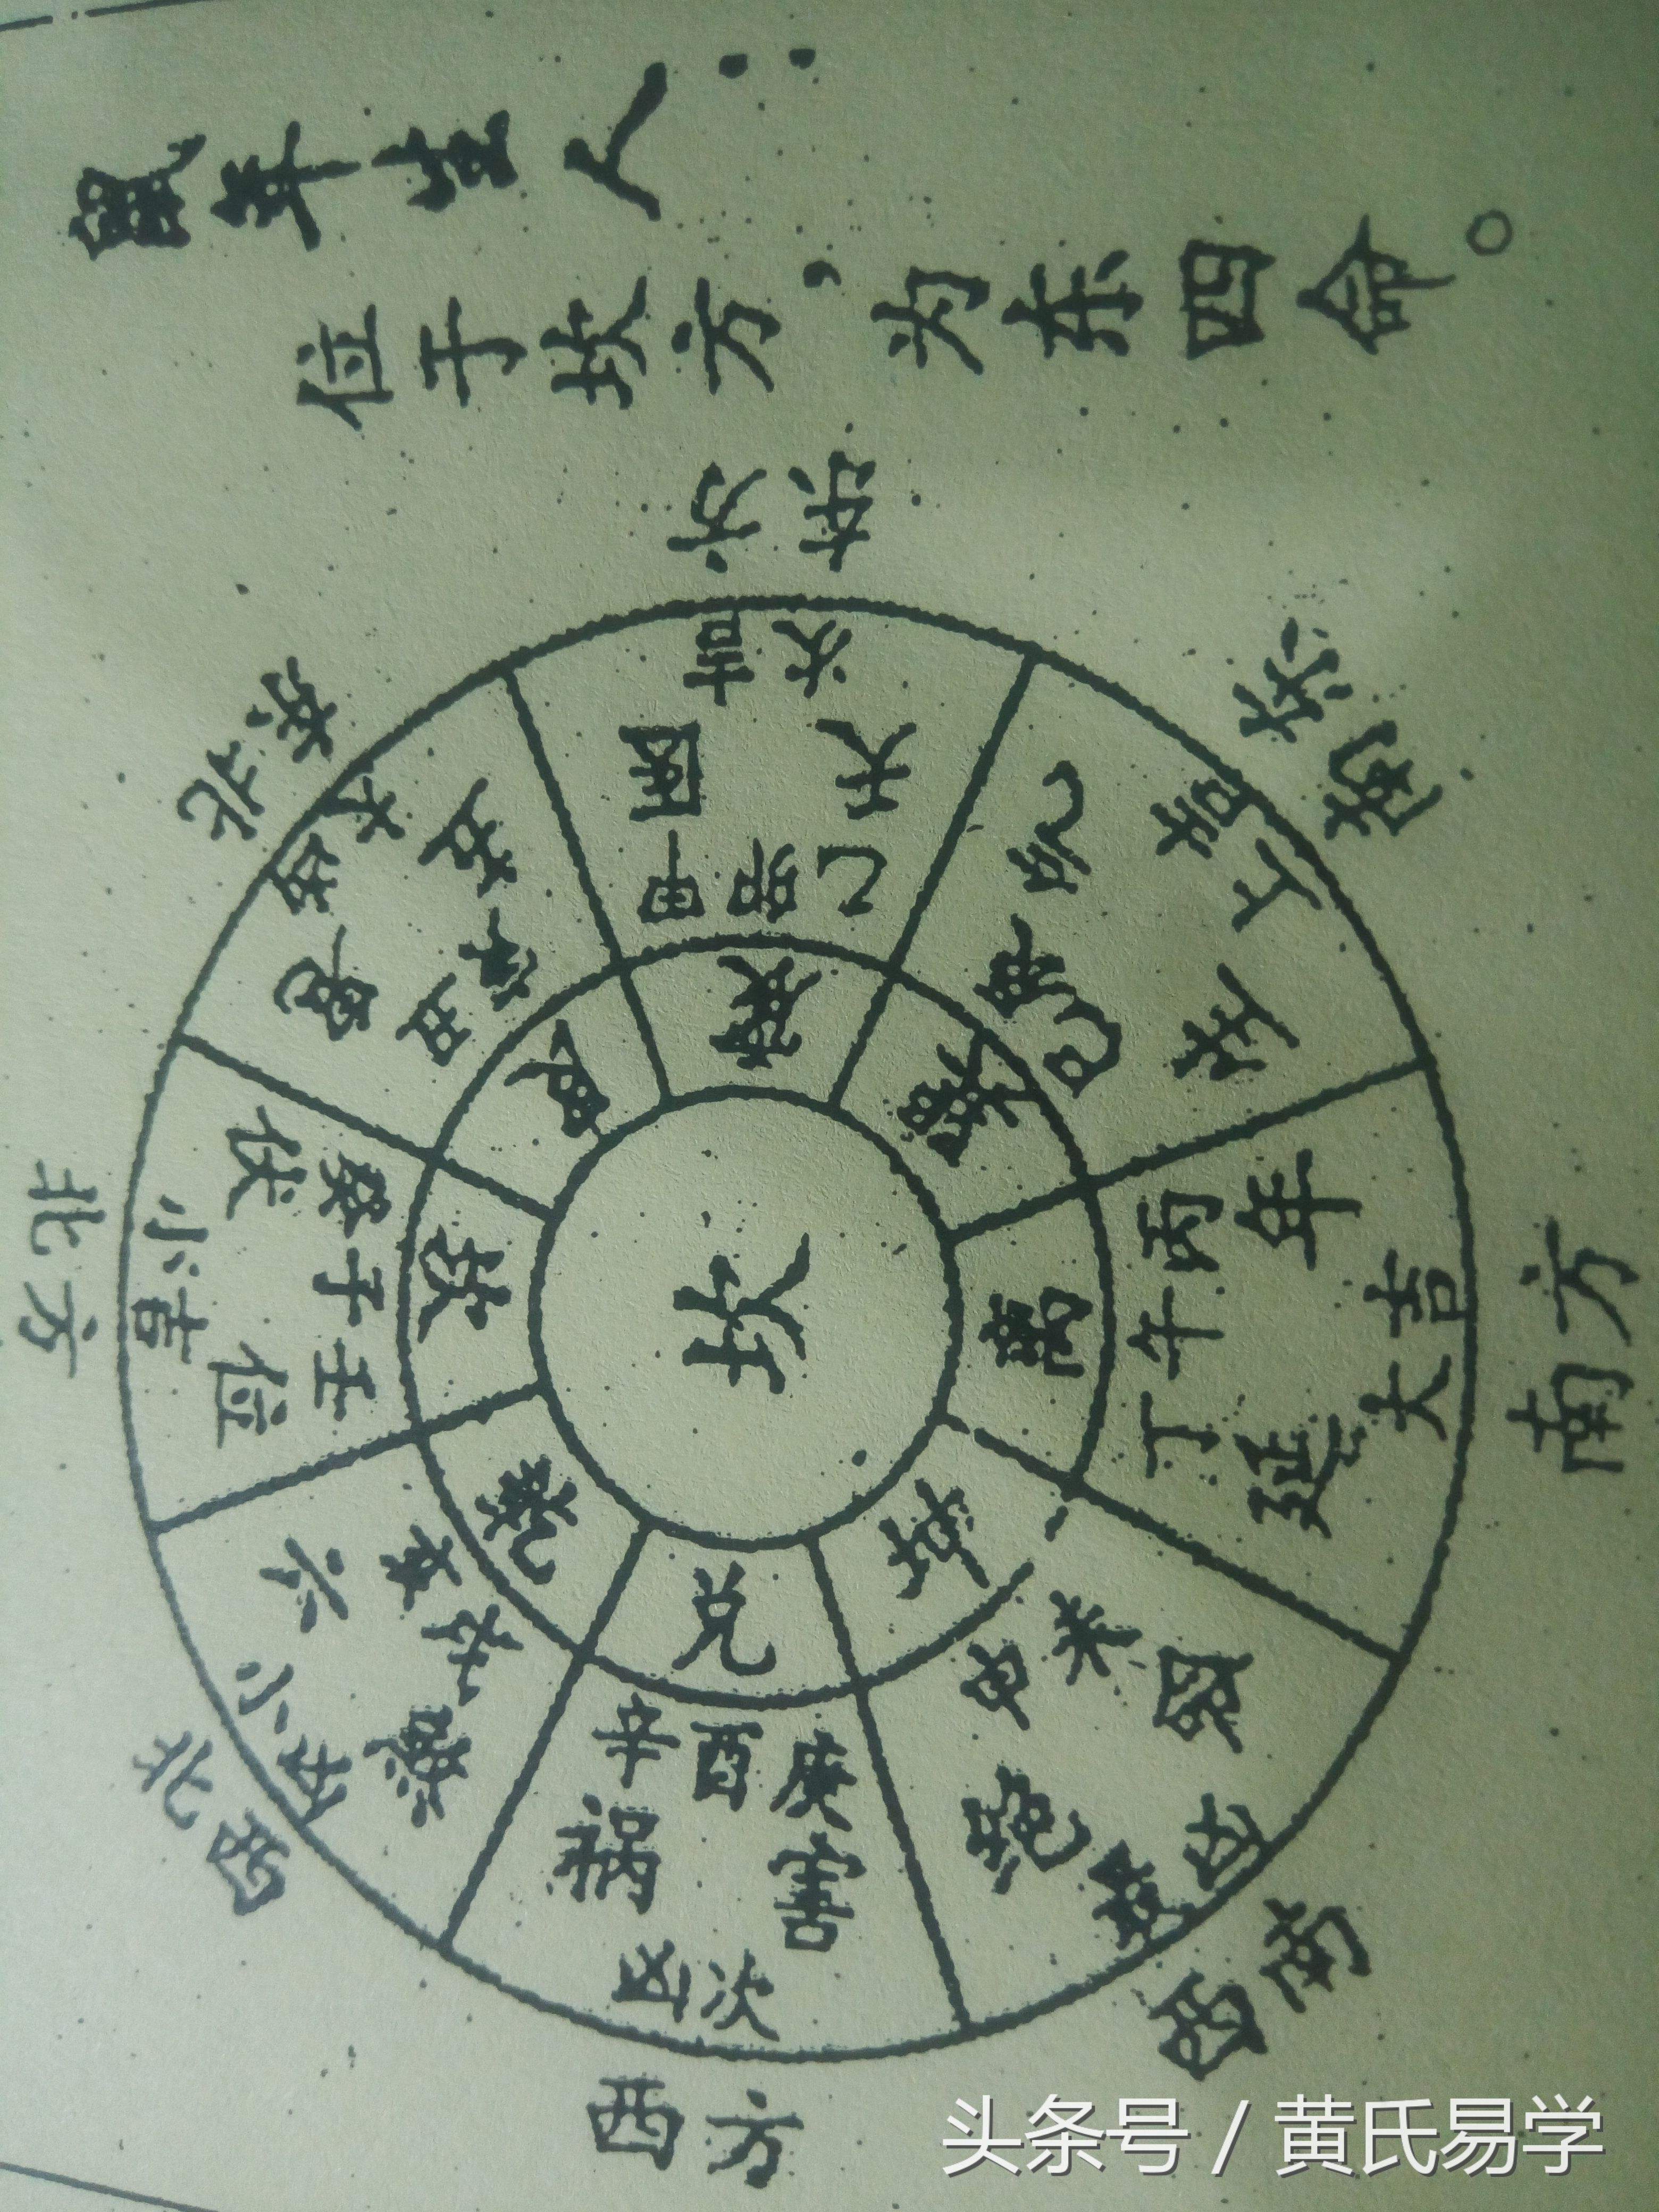 鼠年生人：
位于坎方，为东四命。
东方
次吉
天医
甲卯乙
震
东南
上吉
生气
辰巳
巽
南方
大吉
延年
丙午丁
离
西南
凶
绝
未申
坤
西方
次凶
祸害
辛酉庚
兑
西北
小凶
六煞
戌亥
乾
北方
小吉
伏位
癸子壬
坎
东北
大凶
五鬼
丑寅
艮
坎
头条号 / 黄氏易学